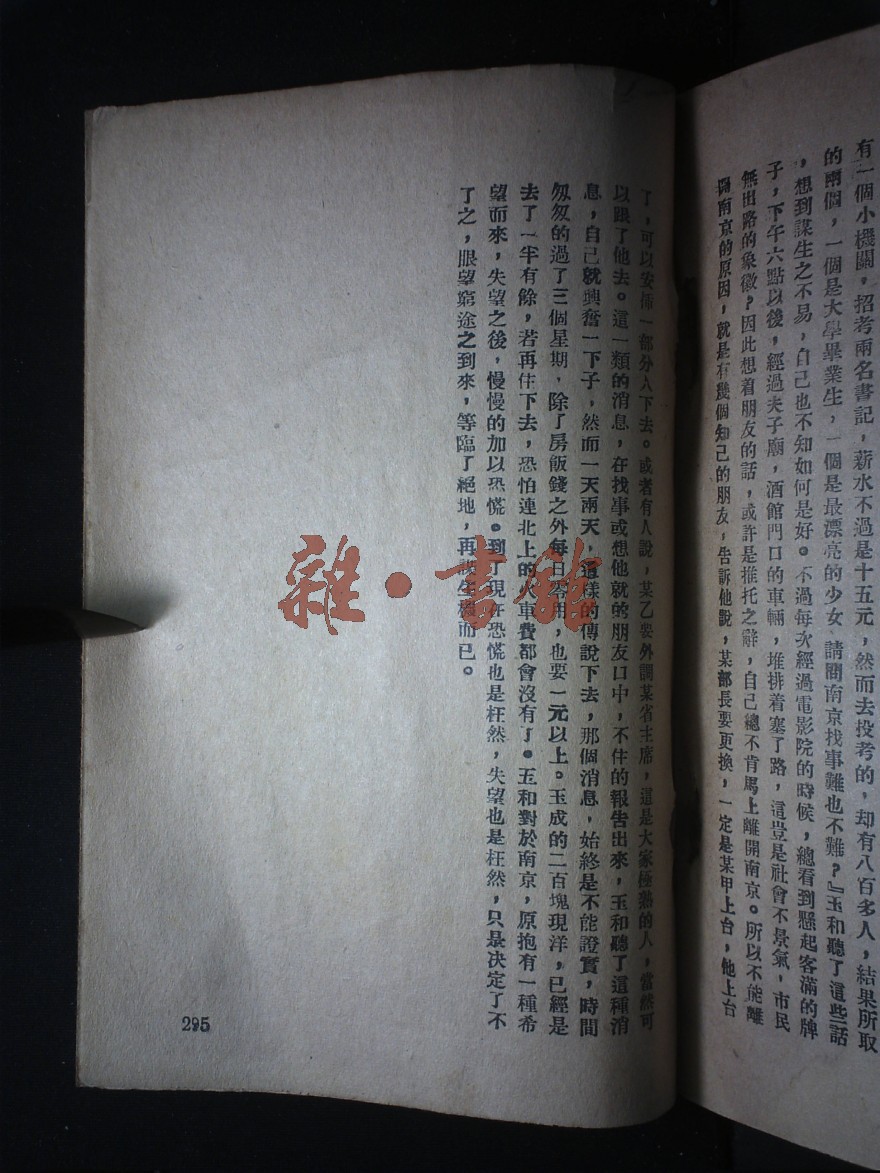 有一個小機關，招考兩名書記，薪水不過是十五元，然而去投考的，却有八百多人，結果所取
的兩個，一個是大學畢業生，一個是最漂亮的少女，請問南京找事難也不難？』玉和聽了這些話
，想到謀生之不易，自己也不知如何是好。不過每次經過電影院的時候，總看到懸起客滿的牌
子，下午六點以後，經過夫子廟，酒館門口的車輛，堆排着塞了路，這豈是社會不景氣，市民
無出路的象徵？因此想着朋友的話，或許是推托之辭，自己總不肯馬上離開南京。所以不能離
開南京的原因，就是有幾個知己的朋友，告訴他說，某部長要更換，一定是某甲上台，他上台
了，可以安插一部分人下去。或者有人說，某乙要外調某省主席，這是大家極熟的人，當然可
以跟了他去。這一類的消息，在找事或想他就的朋友口中，不住的報告出來，玉和聽了這種消
息，自己就興奮一下子，然而一天兩天，這樣的傳說下去，那個消息，始終是不能證實，時間
匆匆的過了三個星期，除了房飯錢之外每日零用，也要一元以上。玉成的二百塊現洋，已經是
去了一半有餘，若再住下去，恐怕連北上的火車費都會沒有了。玉和對於南京，原抱有一種希
望而來，失望之後，慢慢的加以恐慌。到了現在恐慌也是枉然，失望也是枉然，只是決定了不
了之，眼望窮途之到來，等臨了絕地，再找生機而已。
295
雜·書館